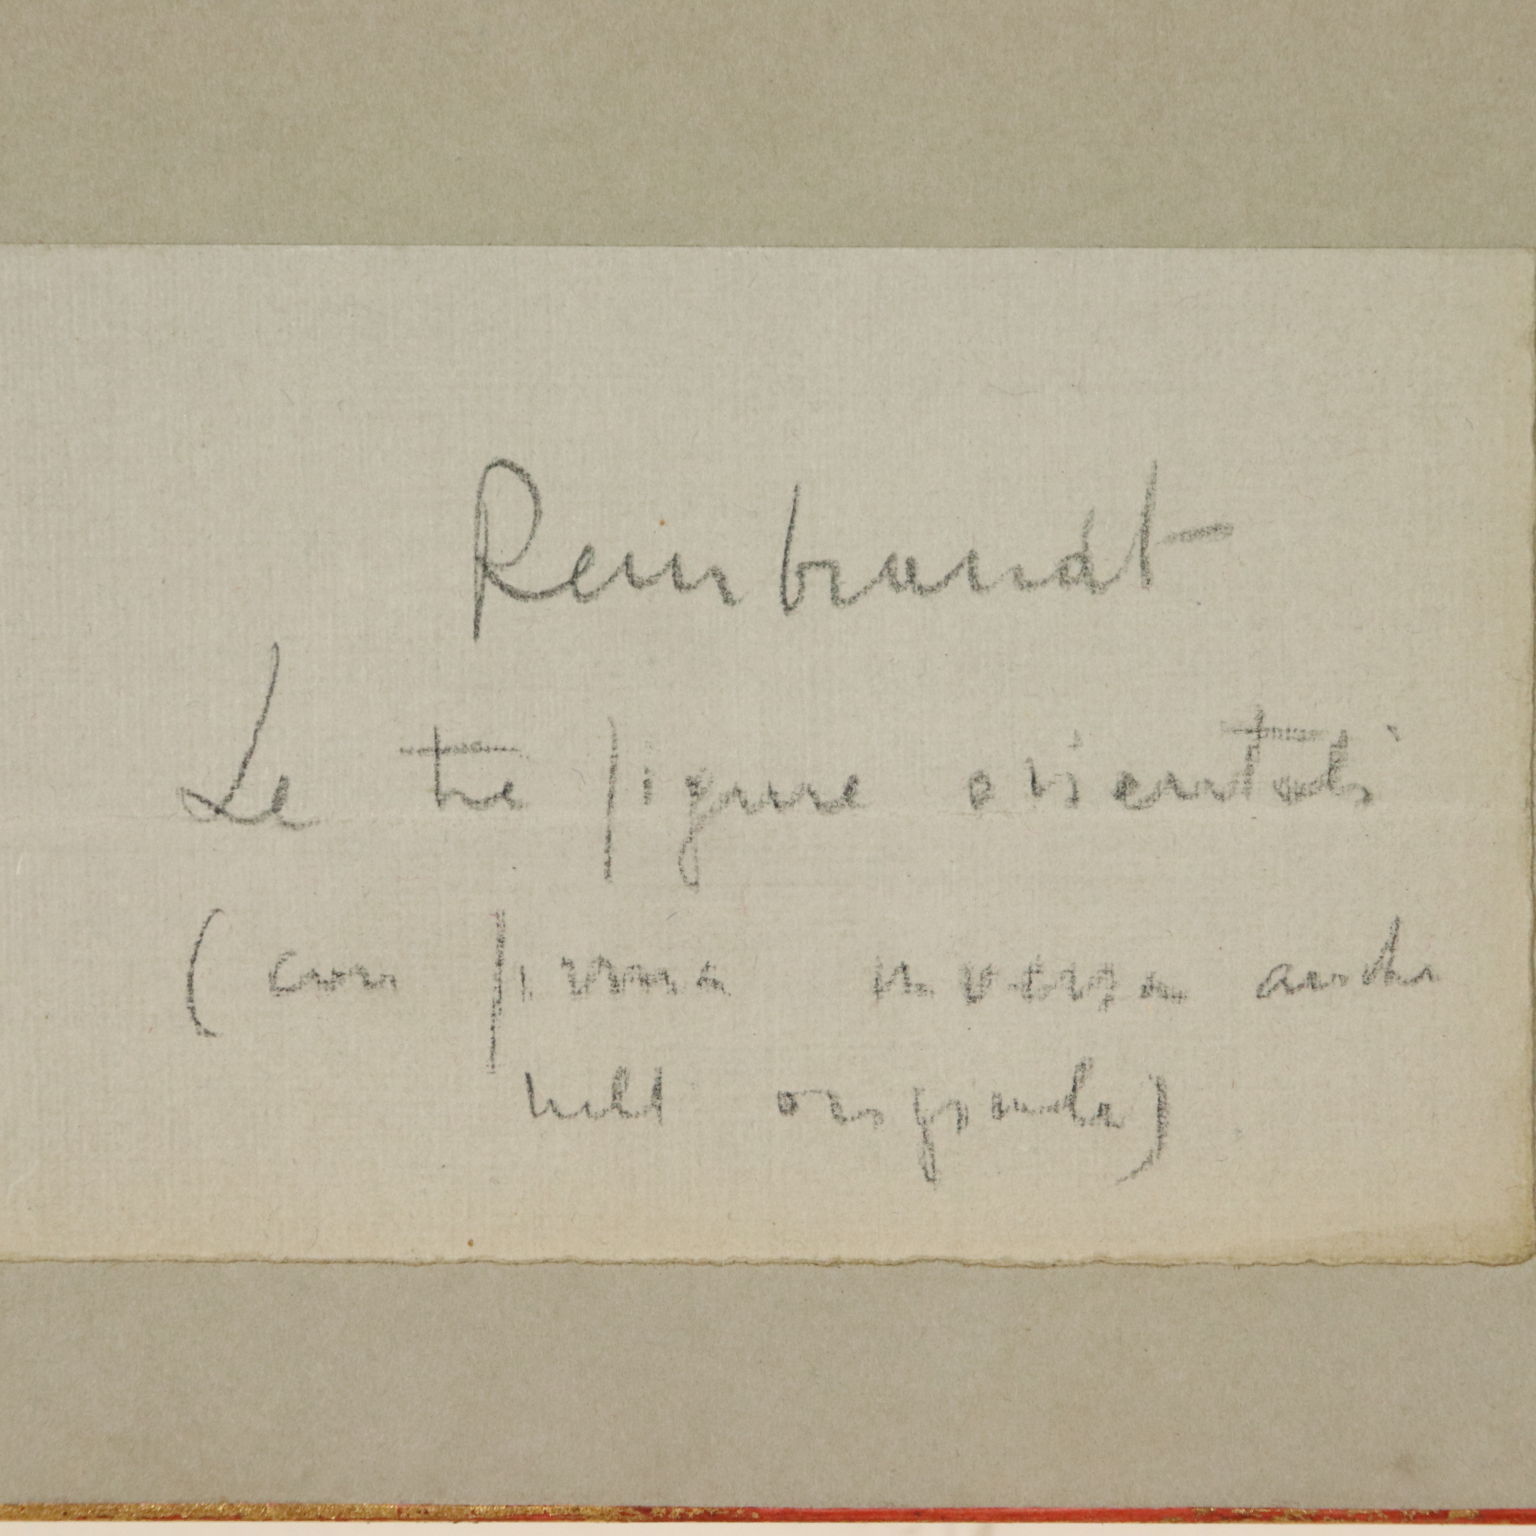 Rembrandt
Le tre figure orientali
(con firma inversa anche
nell originale)